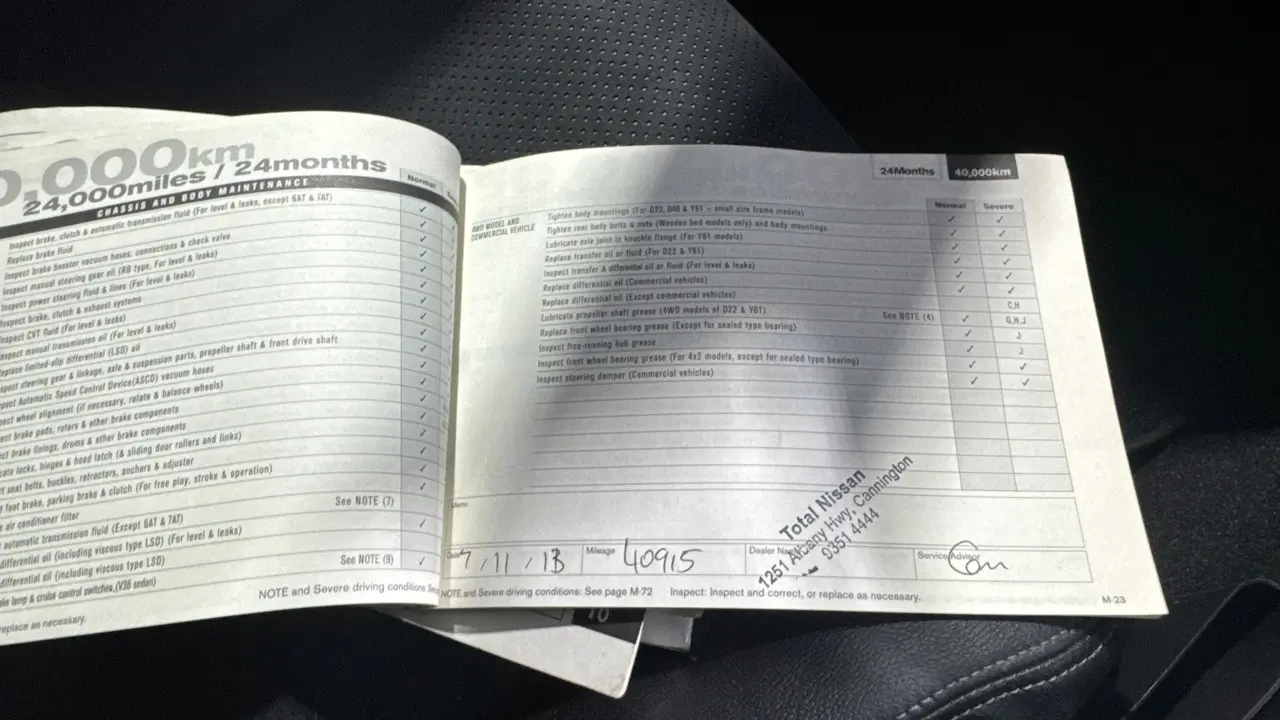 0,000km
24,000miles / 24months
CHASSIS AND BODY MAINTENANCE
Normal
Inspect brake, clutch & automatic transmission fluid (For level & leaks, except 6AT & 7AT) ✓
Replace brake fluid ✓
Inspect brake booster vacuum hoses, connections & check valve ✓
Inspect manual steering gear oil (RB type, For level & leaks) ✓
Inspect power steering fluid & lines (For level & leaks) ✓
Inspect brake, clutch & exhaust systems ✓
Inspect CVT fluid (For level & leaks) ✓
Inspect manual transmission oil (For level & leaks) ✓
Replace limited-slip differential (LSD) oil ✓
spect steering gear & linkage, axle & suspension parts, propeller shaft & front drive shaft ✓
pect Automatic Speed Control Device(ASCD) vacuum hoses ✓
ect wheel alignment (if necessary, rotate & balance wheels) ✓
ect brake pads, rotors & other brake components ✓
ct brake linings, drums & other brake components ✓
cate locks, hinges & hood latch (& sliding door rollers and links) ✓
t seat belts, buckles, retractors, anchors & adjuster ✓
t foot brake, parking brake & clutch (For free play, stroke & operation) ✓
e air conditioner filter See NOTE (7)
automatic transmission fluid (Except 6AT & 7AT) ✓
differential oil (including viscous type LSD) (For level & leaks)
differential oil (including viscous type LSD) See NOTE (9) ✓
ake lamp & cruise control switches,(V36 sedan)
NOTE and Severe driving conditions
replace as necessary.
24Months 40,000km
Normal Severe
4WD MODEL AND
COMMERCIAL VEHICLE
Tighten body mountings (For D22, D40 & Y61 - small size frame models) ✓ ✓
Tighten rear body bolts & nuts (Wooden bed models only) and body mountings ✓ ✓
Lubricate axle joint in knuckle flange (For Y61 models) ✓ ✓
Replace transfer oil or fluid (For D22 & Y61) ✓ ✓
Inspect transfer & differential oil or fluid (For level & leaks) ✓ ✓
Replace differential oil (Commercial vehicles) ✓ ✓
Replace differential oil (Except commercial vehicles) C,H
Lubricate propeller shaft grease (4WD models of D22 & Y61) See NOTE (4) ✓ G,H,J
Replace front wheel bearing grease (Except for sealed type bearing) ✓ J
Inspect free-running hub grease ✓ J
Inspect front wheel bearing grease (For 4x2 models, except for sealed type bearing) ✓ ✓
Inspect steering damper (Commercial vehicles) ✓ ✓
Memo
Total Nissan
1251 Albany Hwy, Cannington
9351 4444
Date 7/11/13 Mileage 40915 Dealer Name Service Advisor
NOTE and Severe driving conditions: See page M-72 Inspect: Inspect and correct, or replace as necessary.
M-23